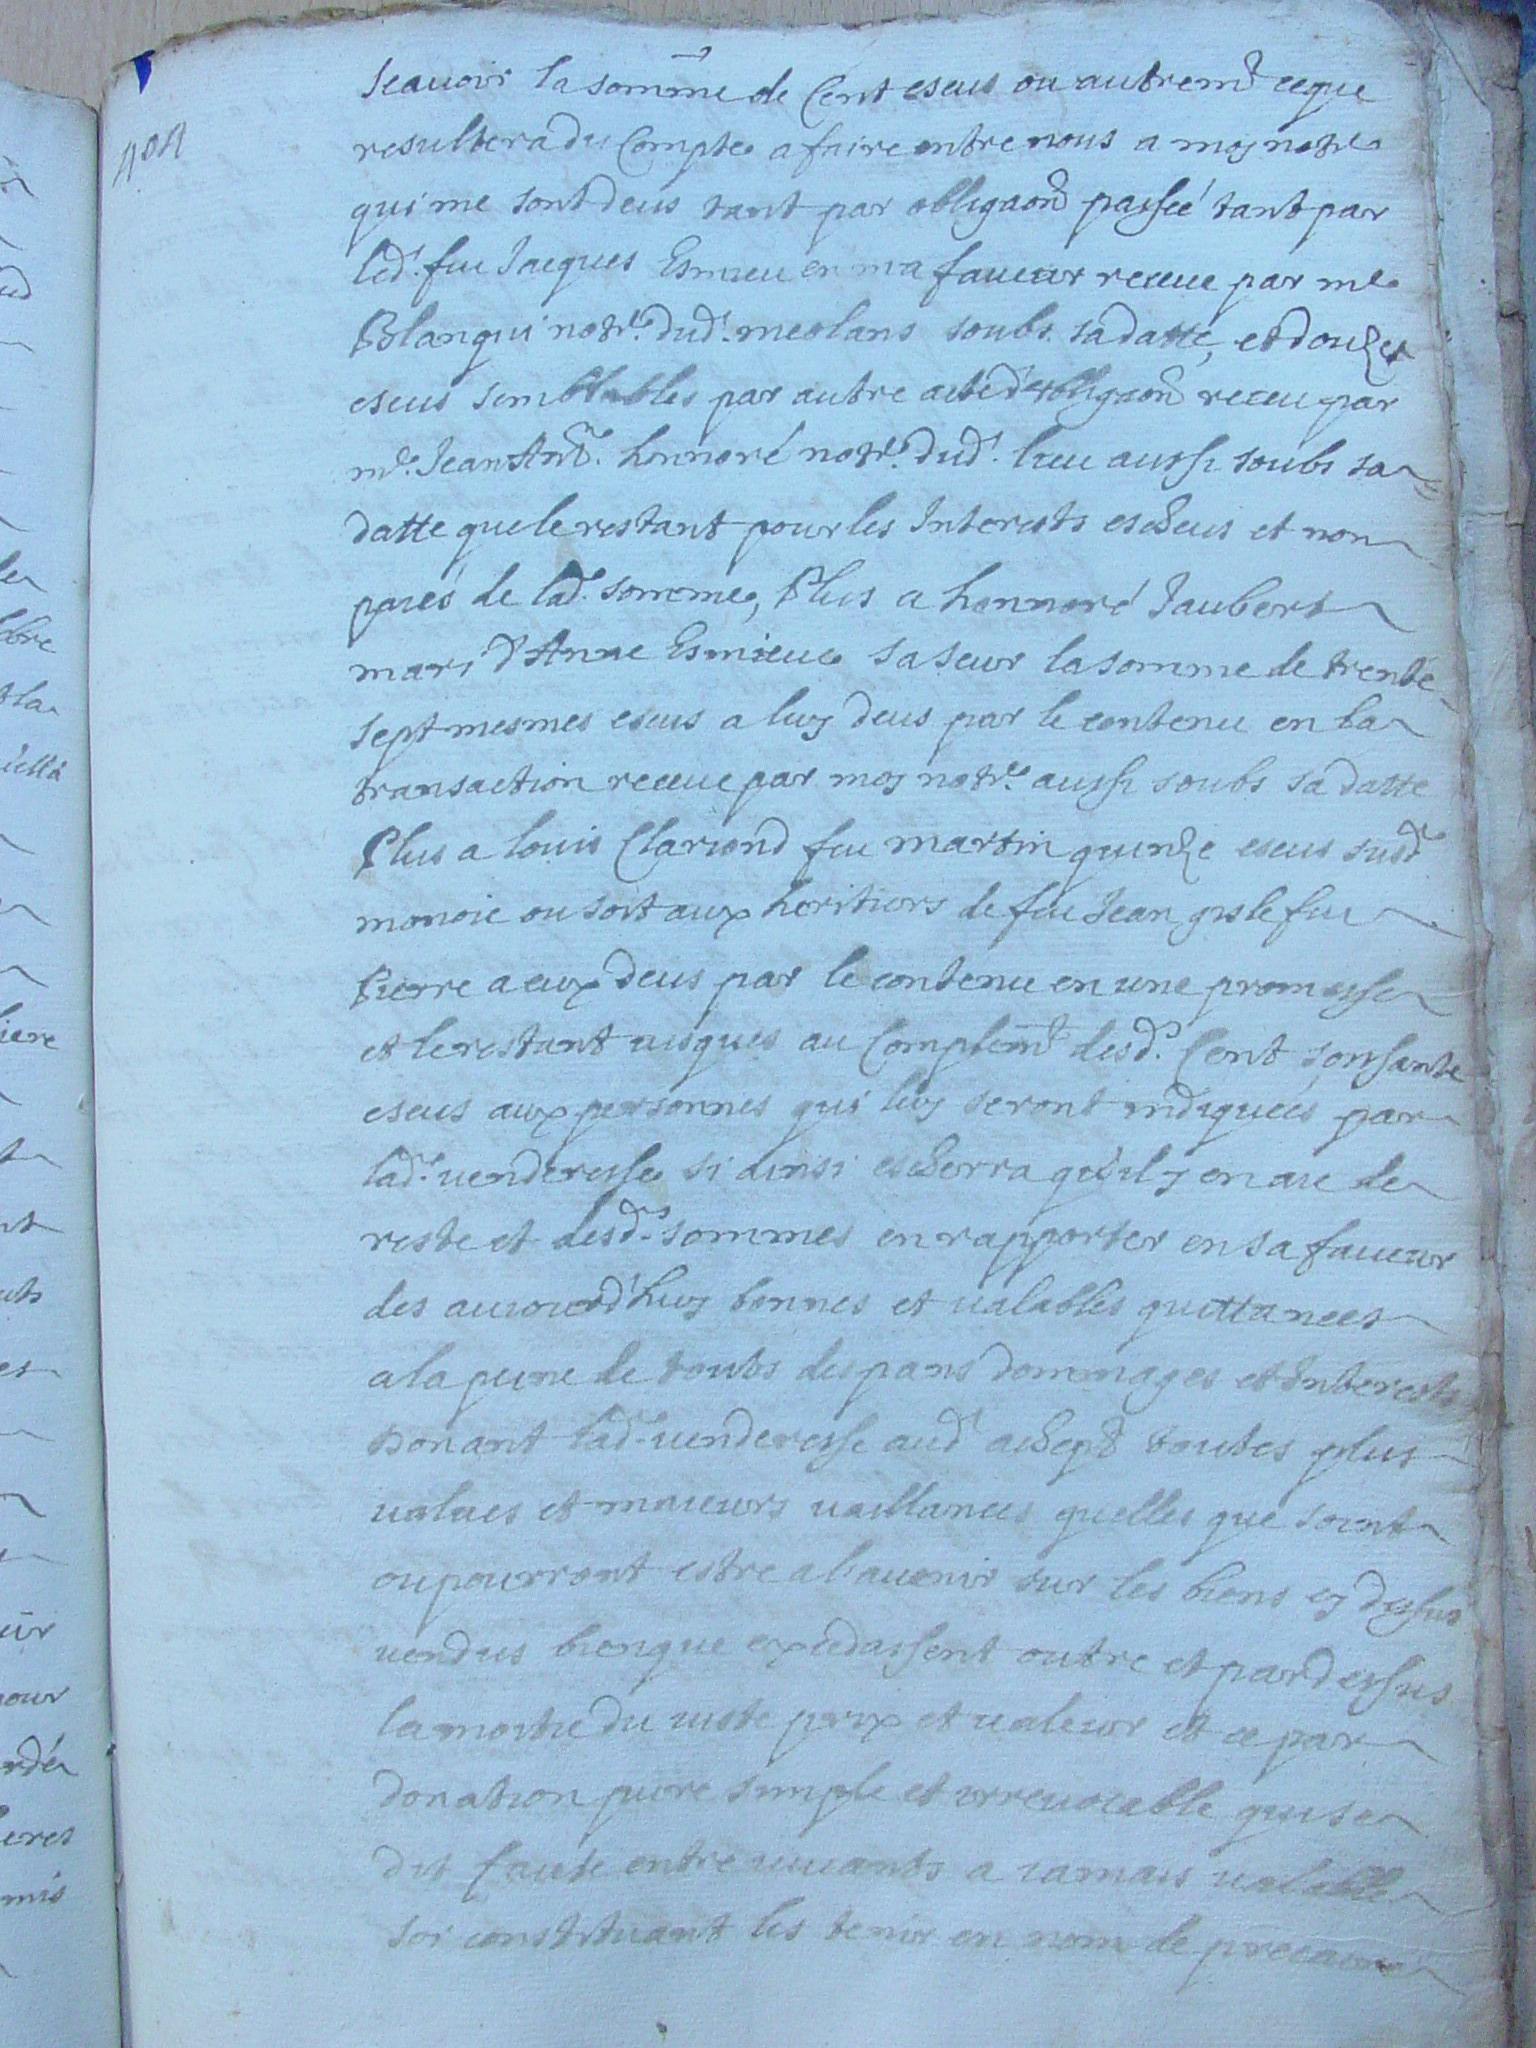 scauoir la somme de Cent escus ou autremt ce que
resultera du Compte a faire entre nous a moy notre
qui me sont deus tant par obligaon passée tant par
led. feu Jacques Esmieu en ma faueur receue par me
Blanqui notre dud. meolans soubs sa datte, et douze
escus semblables par autre acte d'obligaon receu par
me. Jean Ant. honnoré notre dud. lieu aussi soubs sa
datte que le restant pour les Interests escheus et non
paiés de lad. somme, Plus a honnoré Jaubert
mari d'Anne Esmieue sa seur la somme de trente
sept mesmes escus a luy deus par le contenu en la
transaction receue par moy notre aussi soubs sa datte
Plus a louis Clariond feu martin quinze escus susd.
monoie ou soit aux heritiers de feu Jean gisle feu
Pierre a eux deus par le contenu en une promesse
et le restant iusques au Complemt desd. Cent soissante
escus aux personnes qui luy seront indiquées par
lad. uenderesse si ainsi escherra qu'il y en aie de
reste et desd. sommes en rapporter en sa faueur
des auiourd'huy bonnes et ualables quittances
a la peine de touts despans dommages et Interests
Donant lad. uenderesse aud achept toutes plus
ualues et maieurs uaillances quelles que soient
ou pourront estre a l'auenir sur les biens cy dessus
uendus bien que excedassent outre et par dessus
la moitie du iuste prix et ualeur et ce par
donation pure simple et irreuocable que se
dit faite entre uiuants a iamais ualable
soi constituant les tenir en nom de precaire